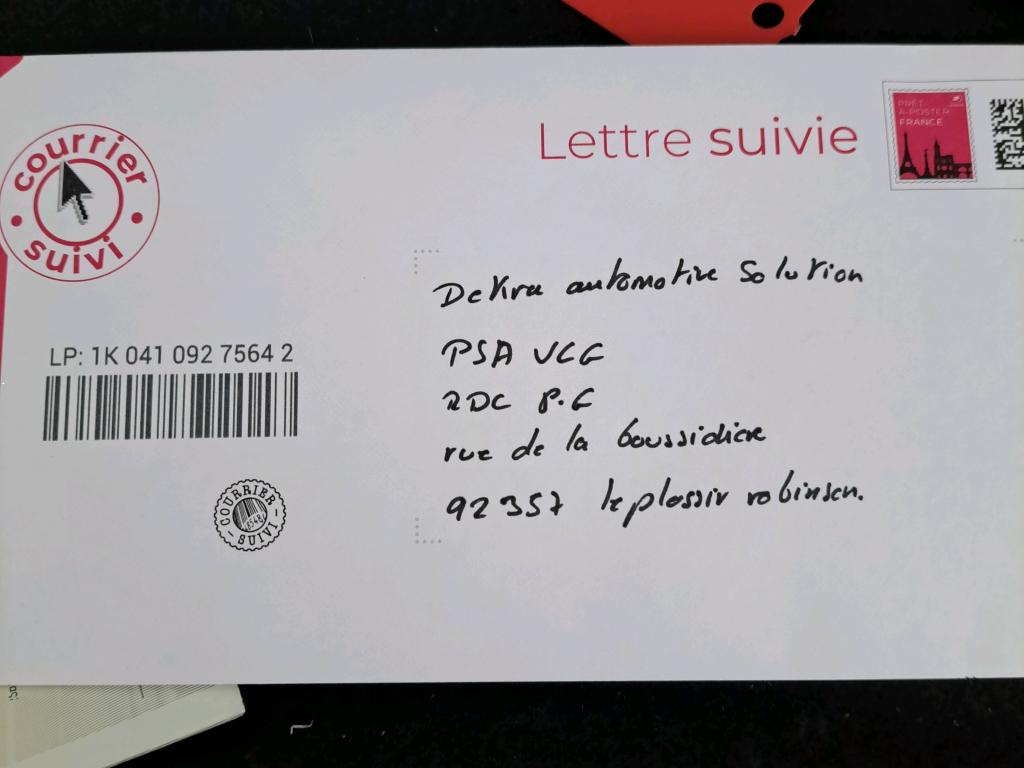 courrier suivi
Lettre suivie
PRÊT-
À-POSTER
FRANCE
LP: 1K 041 092 7564 2
COURRIER SUIVI
Dekra automotive Solution
PSA VCG
RDC P.G
rue de la boussidiere
92 357 le plassir robinson.